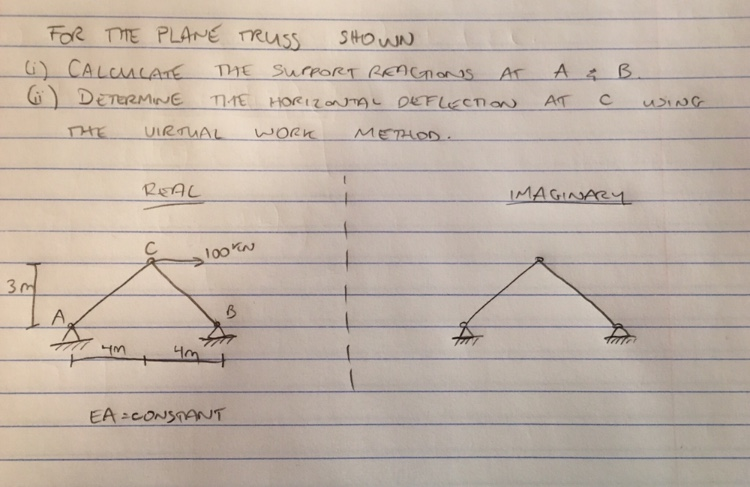 FOR THE PLANE TRUSS SHOWN
(i) CALCULATE THE SUPPORT REACTIONS AT A & B.
(ii) DETERMINE THE HORIZONTAL DEFLECTION AT C USING
THE VIRTUAL WORK METHOD.
REAL
IMAGINARY
C
100KN
3m
A
B
4m
4m
EA = CONSTANT